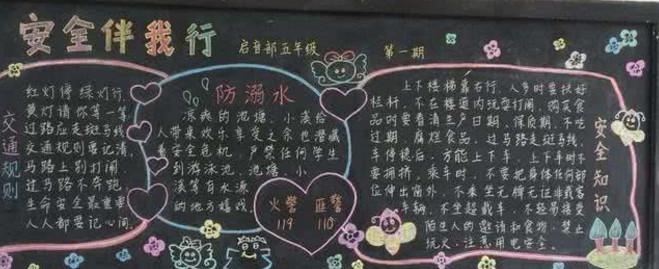 安全伴我行
启音部五年级
第一期
交通规则
红灯停绿灯行,
黄灯请你等一等,
过路应走斑马线,
交通规则要记清,
马路上别打闹,
过马路不奔跑,
生命安全最重要,
人人都要记心间。
防溺水
凉爽的池塘、小溪给
人带来欢乐享受之余也潜藏
着安全危机,严禁任何学生
到游泳池、池塘、小
溪等有水源
的地方嬉戏。
火警
119
匪警
110
安全知识
上下楼梯靠右行,人多时要扶好
栏杆,不在楼道内玩耍打闹,购买食
品时要看清生产日期、保质期,不吃
过期、腐烂食品。过马路走斑马线,
车停稳后,方能上下车,上下车时不
要拥挤,乘车时,不要把身体任何部
位伸出窗外,不乘坐无牌无证非载客
车辆,不坐超载车,不轻易接受
陌生人的邀请和食物,禁止
玩火,注意用电安全。